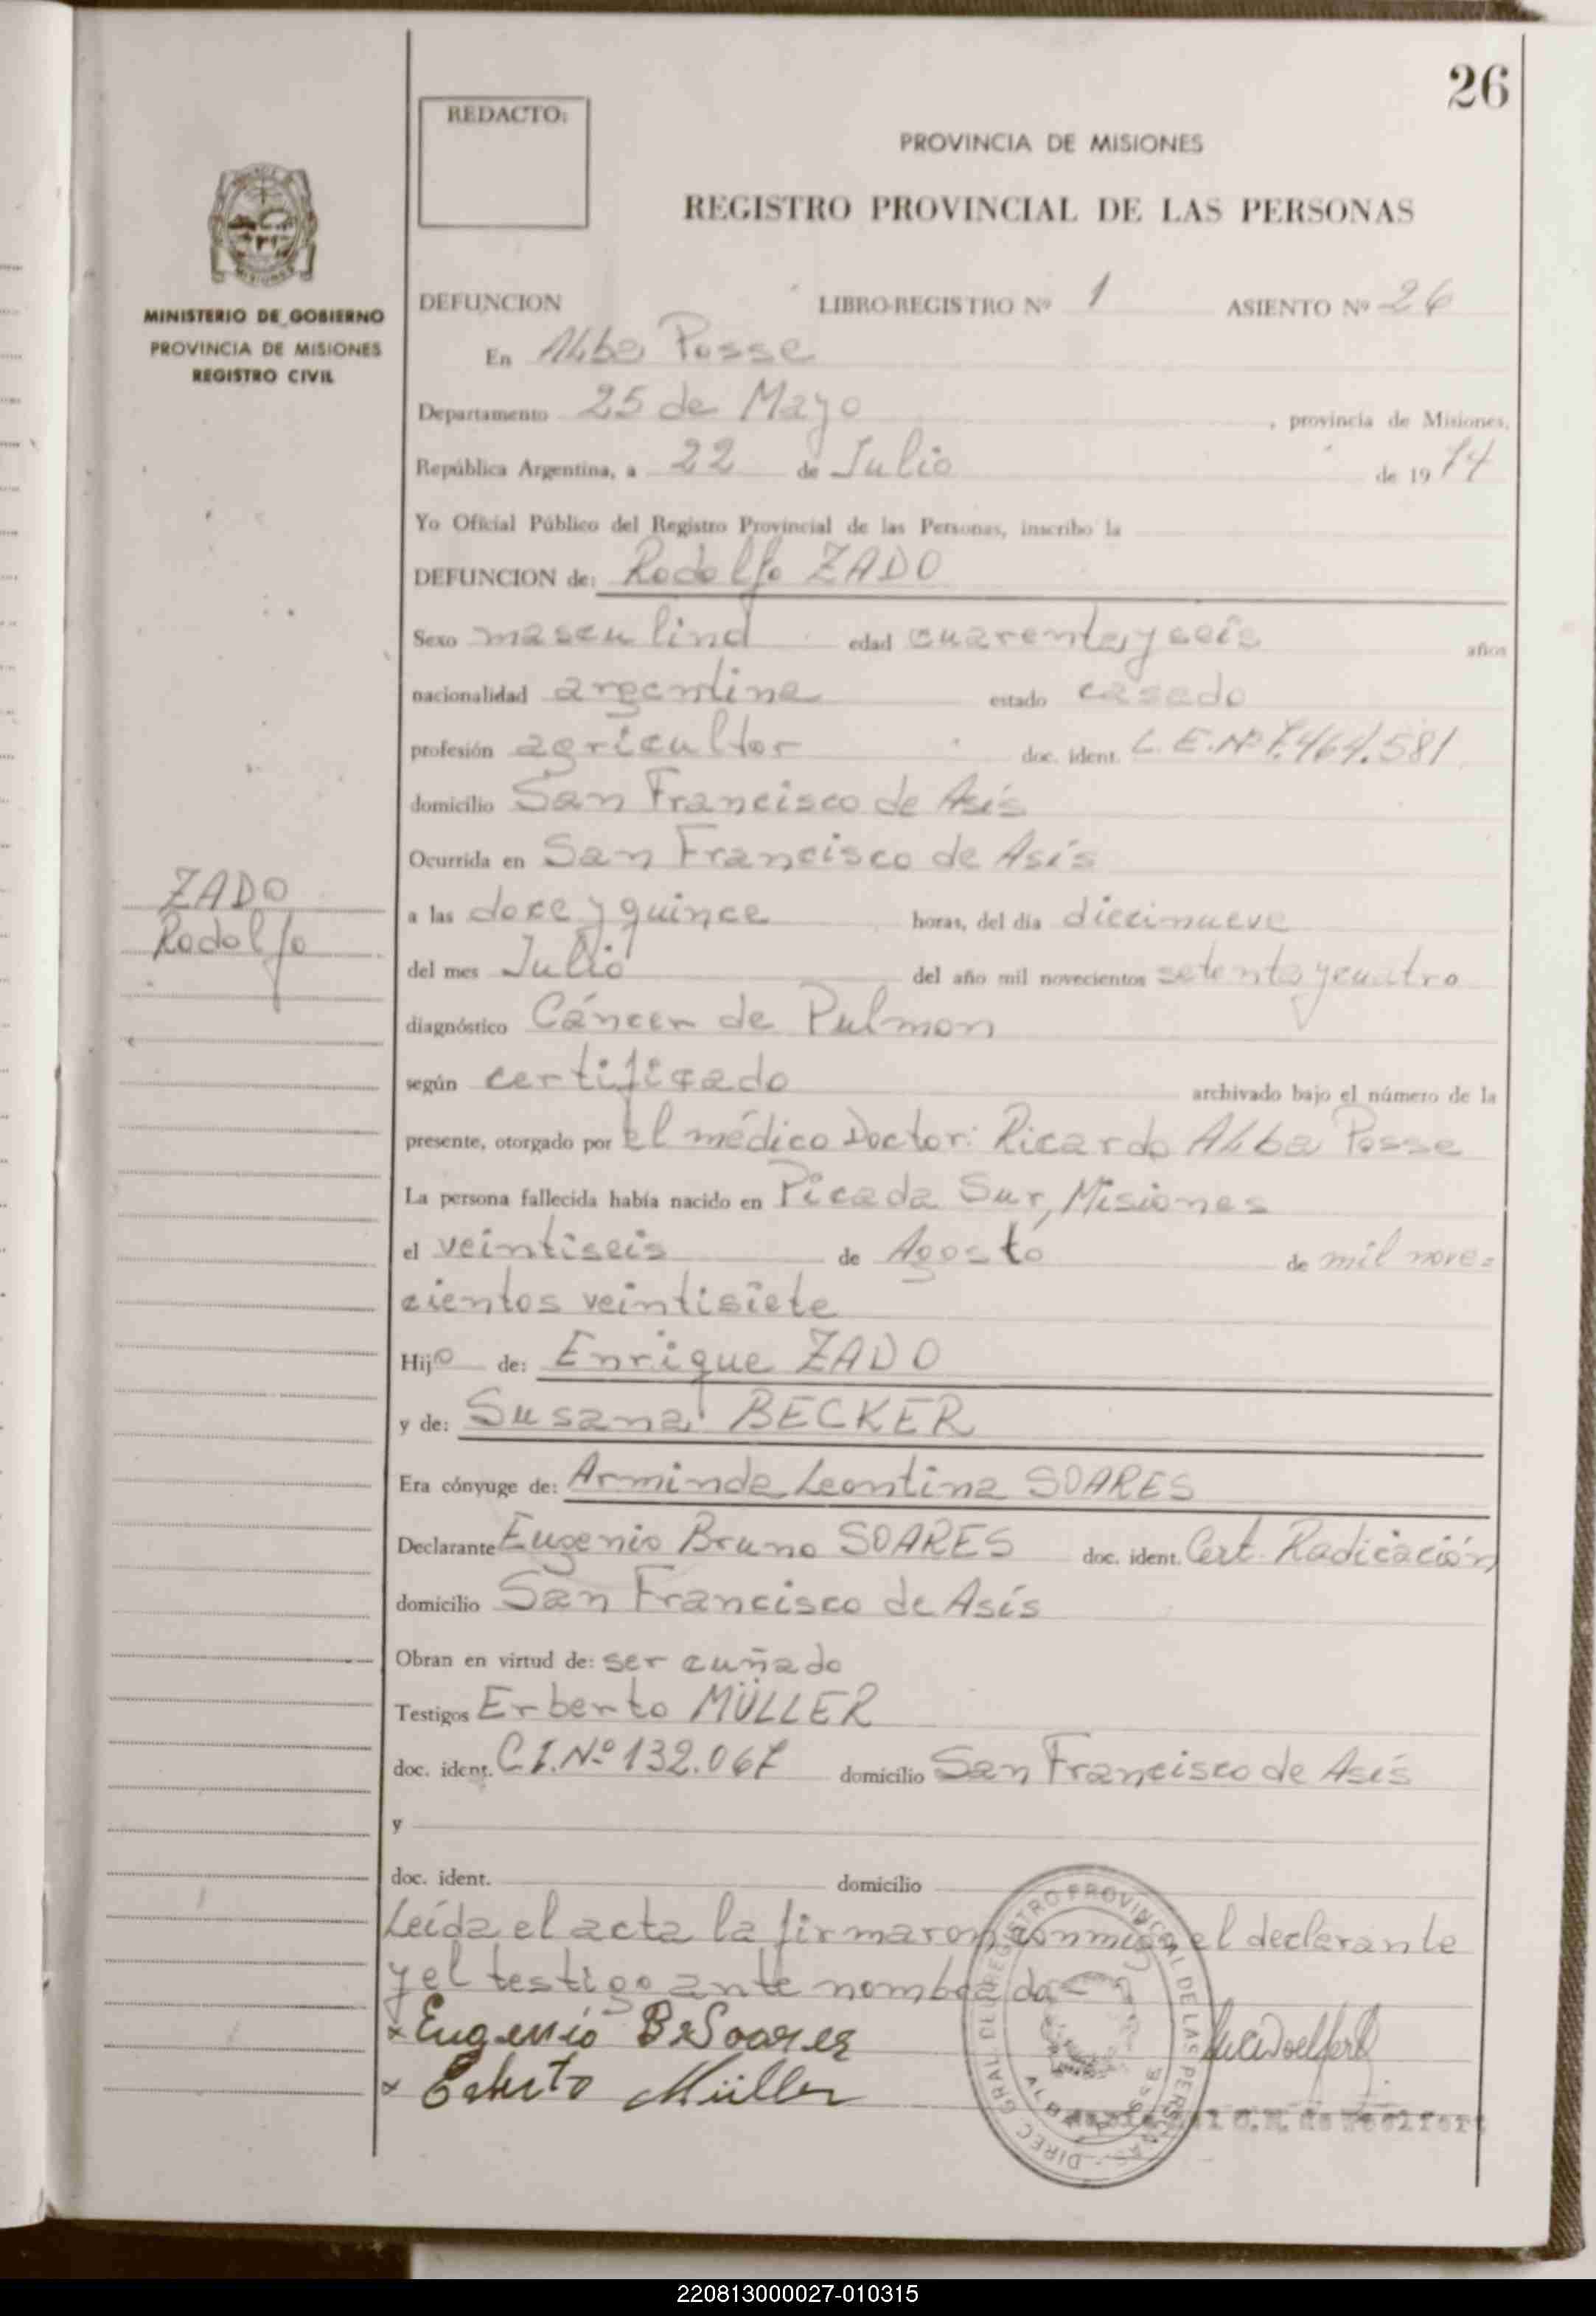 26
REDACTO:
PROVINCIA DE MISIONES
REGISTRO PROVINCIAL DE LAS PERSONAS
MISIONES
MINISTERIO DE GOBIERNO
PROVINCIA DE MISIONES
REGISTRO CIVIL
DEFUNCION LIBRO-REGISTRO Nº 1 ASIENTO Nº 26
En Alba Posse
Departamento 25 de Mayo, provincia de Misiones,
República Argentina, a 22 de Julio de 1974
Yo Oficial Público del Registro Provincial de las Personas, inscribo la
DEFUNCION de: Rodolfo ZADO
Sexo masculino edad cuarenta y seis años
nacionalidad argentina estado casado
profesión agricultor doc. ident. L.E.Nº 7.464.581
domicilio San Francisco de Asís
Ocurrida en San Francisco de Asís
ZADO
Rodolfo
a las doce y quince horas, del día diecinueve
del mes Julio del año mil novecientos setenta y cuatro
diagnóstico Cáncer de Pulmon
según certificado archivado bajo el número de la
presente, otorgado por el médico Doctor: Ricardo Alba Posse
La persona fallecida había nacido en Picada Sur, Misiones
el veintiseis de Agosto de mil nove=
cientos veintisiete
Hijo de: Enrique ZADO
y de: Susana BECKER
Era cónyuge de: Arminda Leontina SOARES
Declarante Eugenio Bruno SOARES doc. ident. Cert. Radicación
domicilio San Francisco de Asís
Obran en virtud de: ser cuñado
Testigos Erberto MÜLLER
doc. ident. C.I.Nº 132.067 domicilio San Francisco de Asís
y
doc. ident. domicilio
Leída el acta la firmaron conmigo el declarante
y el testigo ante nombrado
x Eugenio B Soares
x Erberto Müller
DIREC. GRAL. DEL REGISTRO PROVINCIAL DE LAS PERSONAS
ALBA POSSE
de Woelfert
220813000027-010315